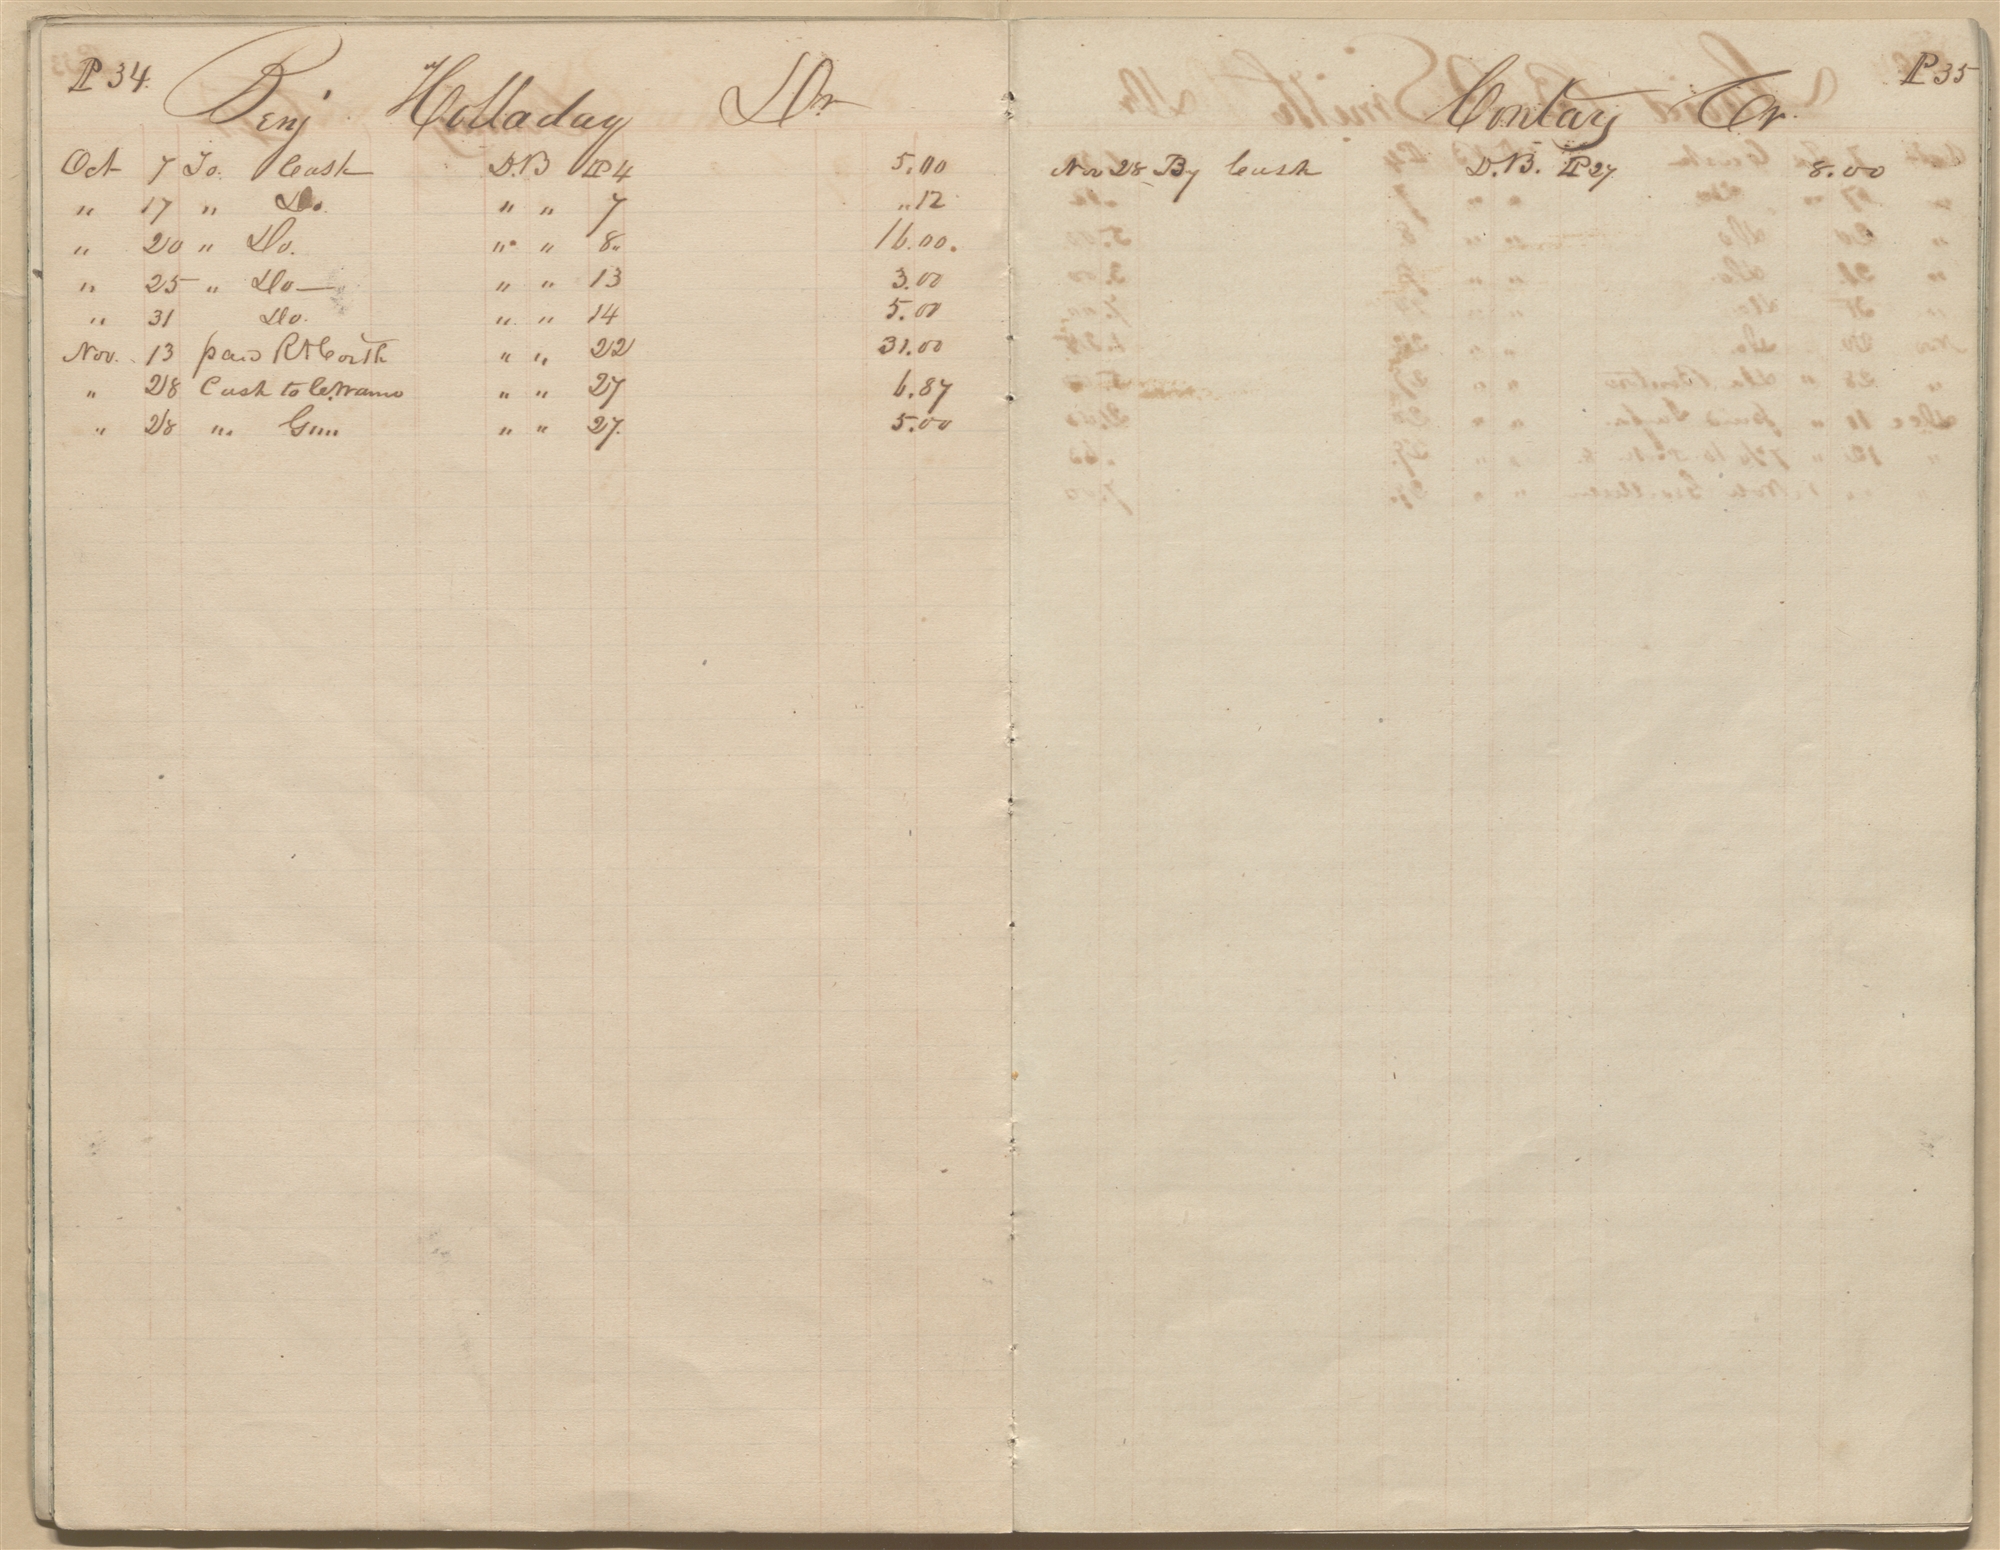 P 34.
Benj Holladay Dr
Oct 7 To Cash D.B P 4 5.00
" 17 " Do. " " 7 " 12
" 20 " Do. " " 8 " 16.00.
" 25 " Do — " " 13 3.00
" 31 Do. " " 14 5.00
Nov. 13 paid R " " 22 31.00
" 28 Cash to " " 27 6.87
" 28 " Gun " " 27. 5.00
P 35
Contay Cr.
Nov 28 By Cash D.B. P 27 8.00